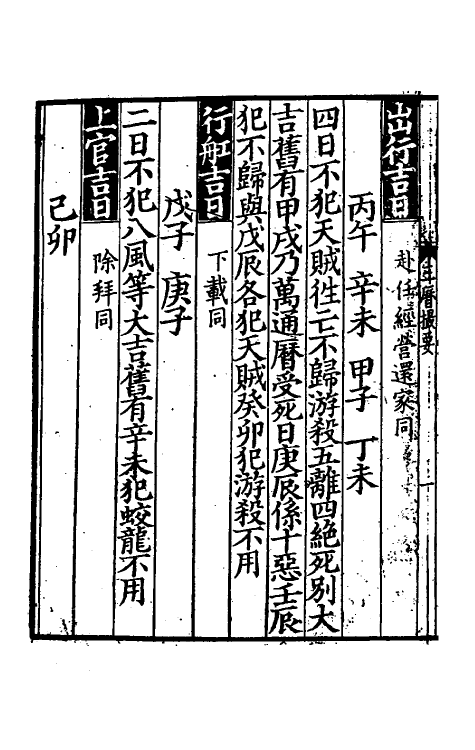 出行吉日 赴任經營還家同
丙午 辛未 甲子 丁未
四日不犯天賊徃亡不歸游殺五離四絕死别大
吉舊有甲戌乃萬通曆受死日庚辰係十惡壬辰
犯不歸與戊辰各犯天賊癸卯犯游殺不用
行船吉日 下載同
戊子 庚子
二日不犯八風等大吉舊有辛未犯蛟龍不用
上官吉日 除拜同
己卯